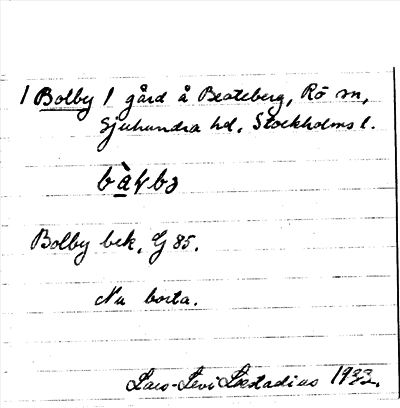 1 Bolby 1 gård å Beateberg, Rö sn,
Sjuhundra hd, Stockholms l.
Bolby bek. G 85.
Nu borta.
Lars-Levi Læstadius 1933.